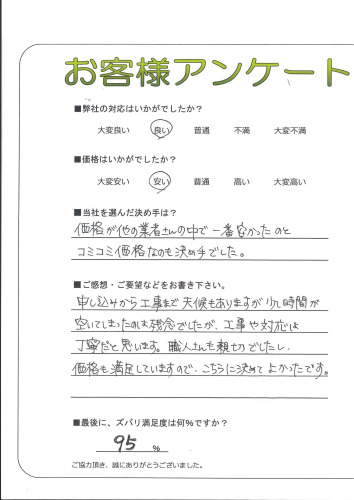 お客様アンケート
■弊社の対応はいかがでしたか？
大変良い 良い 普通 不満 大変不満
■価格はいかがでしたか？
大変安い 安い 普通 高い 大変高い
■当社を選んだ決め手は？
価格が他の業者さんの中で一番安かったのと
コミコミ価格なのも決め手でした。
■ご感想・ご要望などをお書き下さい。
申し込みから工事まで天候もありますが少し時間が
空いてしまったのは残念でしたが、工事や対応は
丁寧だと思います。職人さんも親切でしたし、
価格も満足していますので、こちらに決めてよかったです。
■最後に、ズバリ満足度は何%ですか？
95 %
ご協力頂き、誠にありがとうございました。